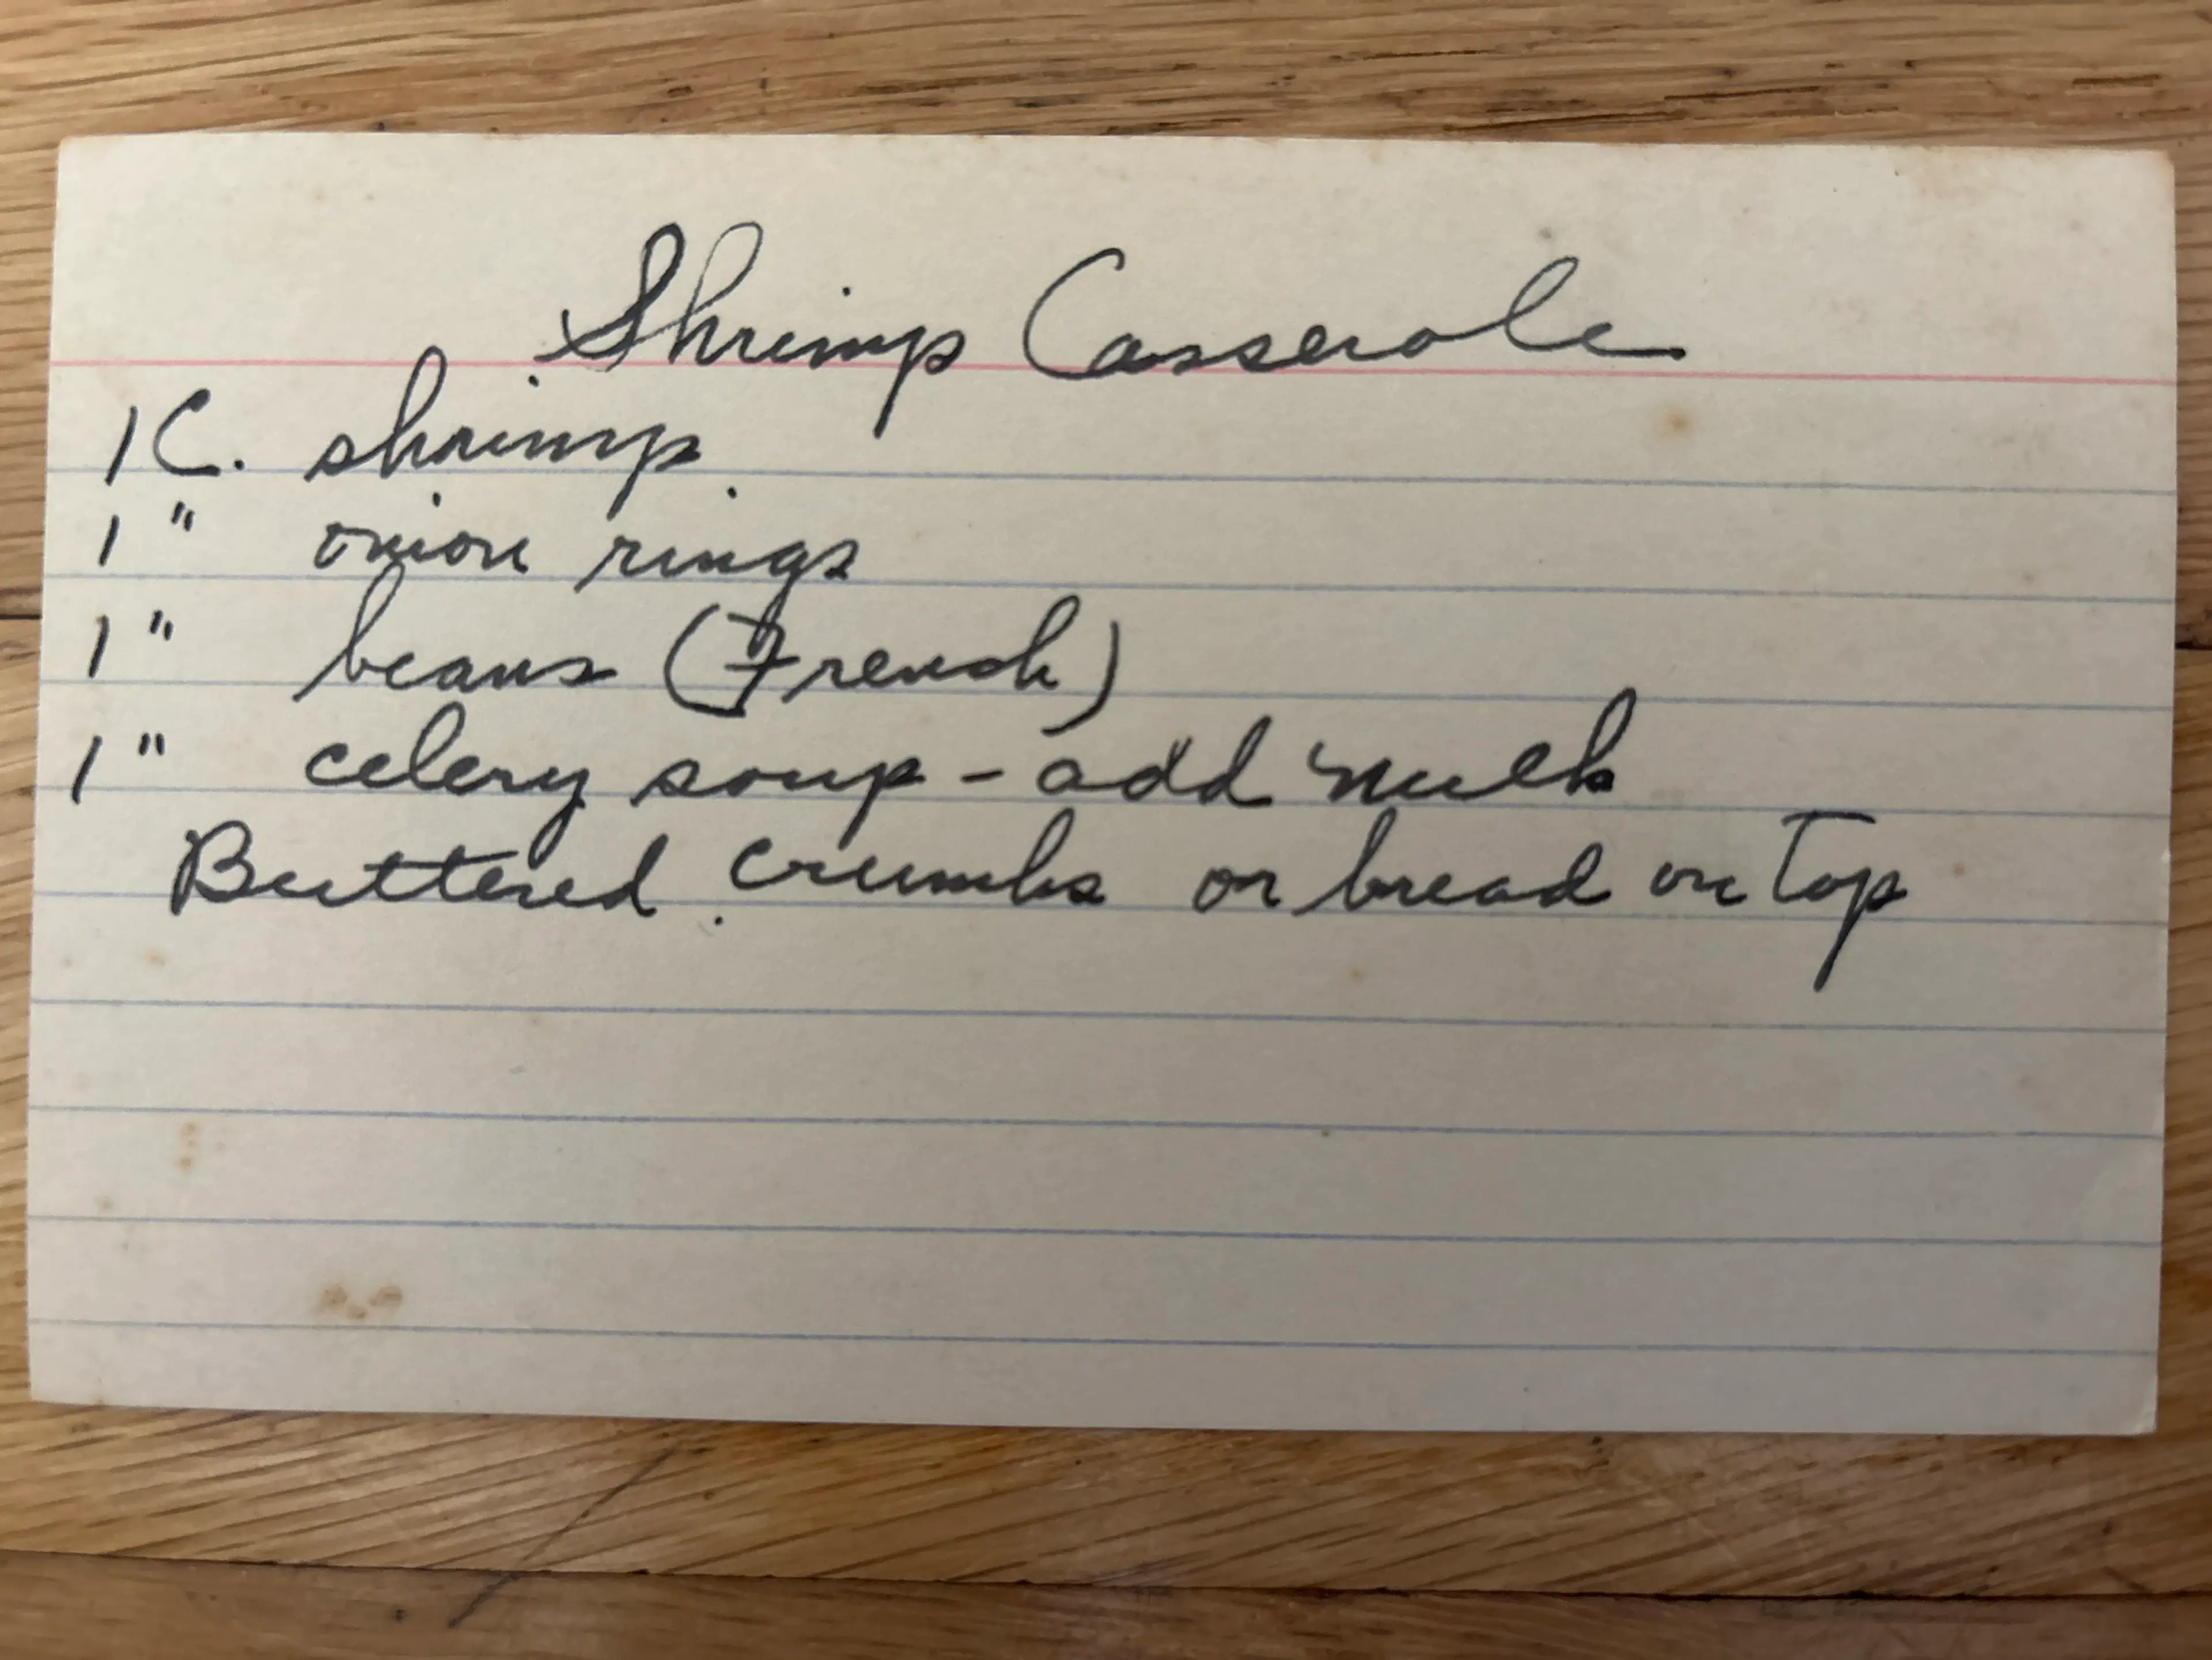 Shrimp Casserole
1 C. shrimp
1 " onion rings
1 " beans (French)
1 " celery soup - add milk
Buttered crumbs or bread on top